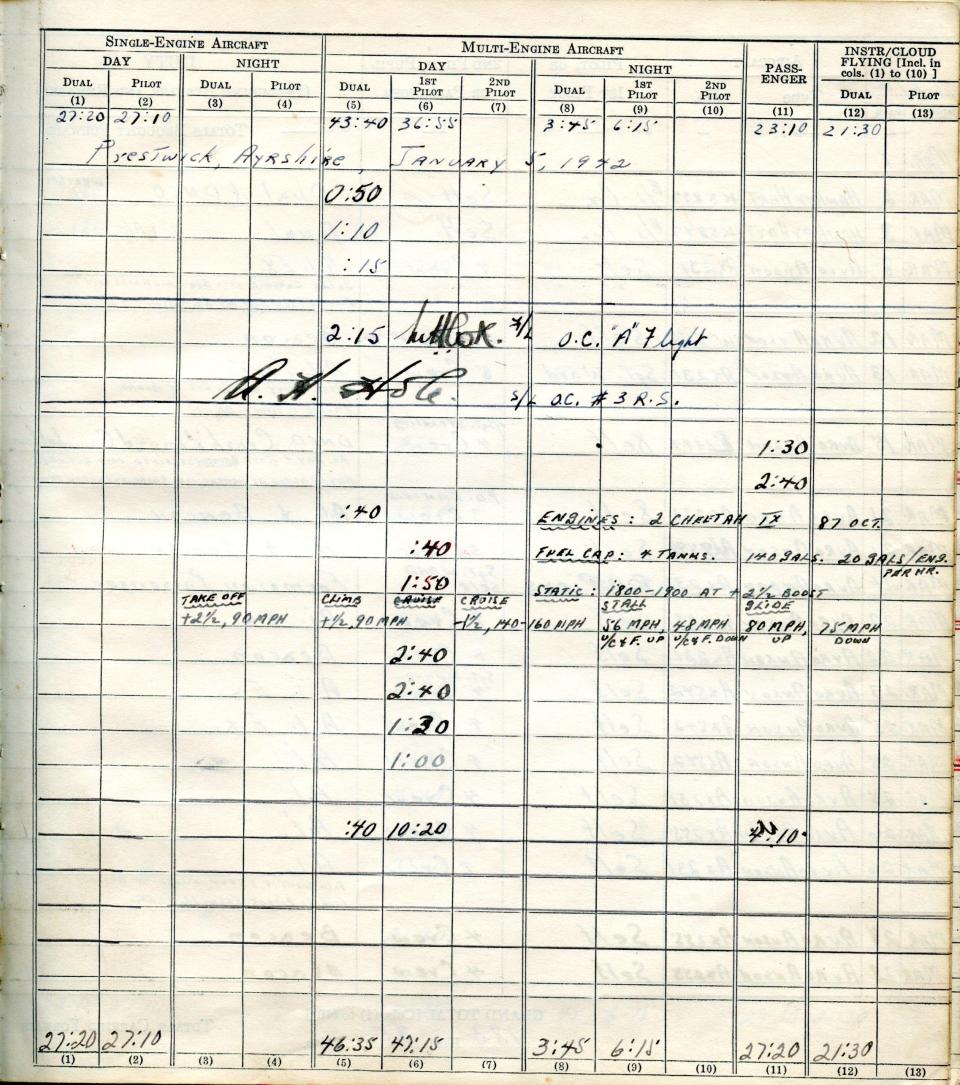 SINGLE-ENGINE AIRCRAFT MULTI-ENGINE AIRCRAFT PASS-ENGER INSTR/CLOUD FLYING [Incl. in cols. (1) to (10) ]
DAY NIGHT DAY NIGHT
DUAL PILOT DUAL PILOT DUAL 1ST PILOT 2ND PILOT DUAL 1ST PILOT 2ND PILOT DUAL PILOT
(1) (2) (3) (4) (5) (6) (7) (8) (9) (10) (11) (12) (13)
27:20 27:10 43:40 36:55 3:45 6:15 23:10 21:30
Prestwick, Ayrshire, January 5, 1942
0:50
1:10
:15
2:15 F/L O.C. "A" Flight
A. H. Hole. S/L O.C. # 3 R.S.
1:30
2:40
:40 ENGINES: 2 CHEETAH IX 87 OCT.
:40 FUEL CAP: 4 TANKS. 140 GALS. 20 GALS/ENG. PER HR.
1:50 STATIC: 1800-1900 AT +2½ BOOST
TAKE OFF CLIMB CRUISE CRUISE STALL GLIDE
+2½, 90 MPH +½, 90 MPH -1½, 140-160 MPH 56 MPH, 48 MPH 80 MPH, 75 MPH
U/C & F. UP U/C & F. DOWN UP DOWN
2:40
2:40
1:30
1:00
:40 10:20 4:10
27:20 27:10 46:35 47:15 3:45 6:15 27:20 21:30
(1) (2) (3) (4) (5) (6) (7) (8) (9) (10) (11) (12) (13)